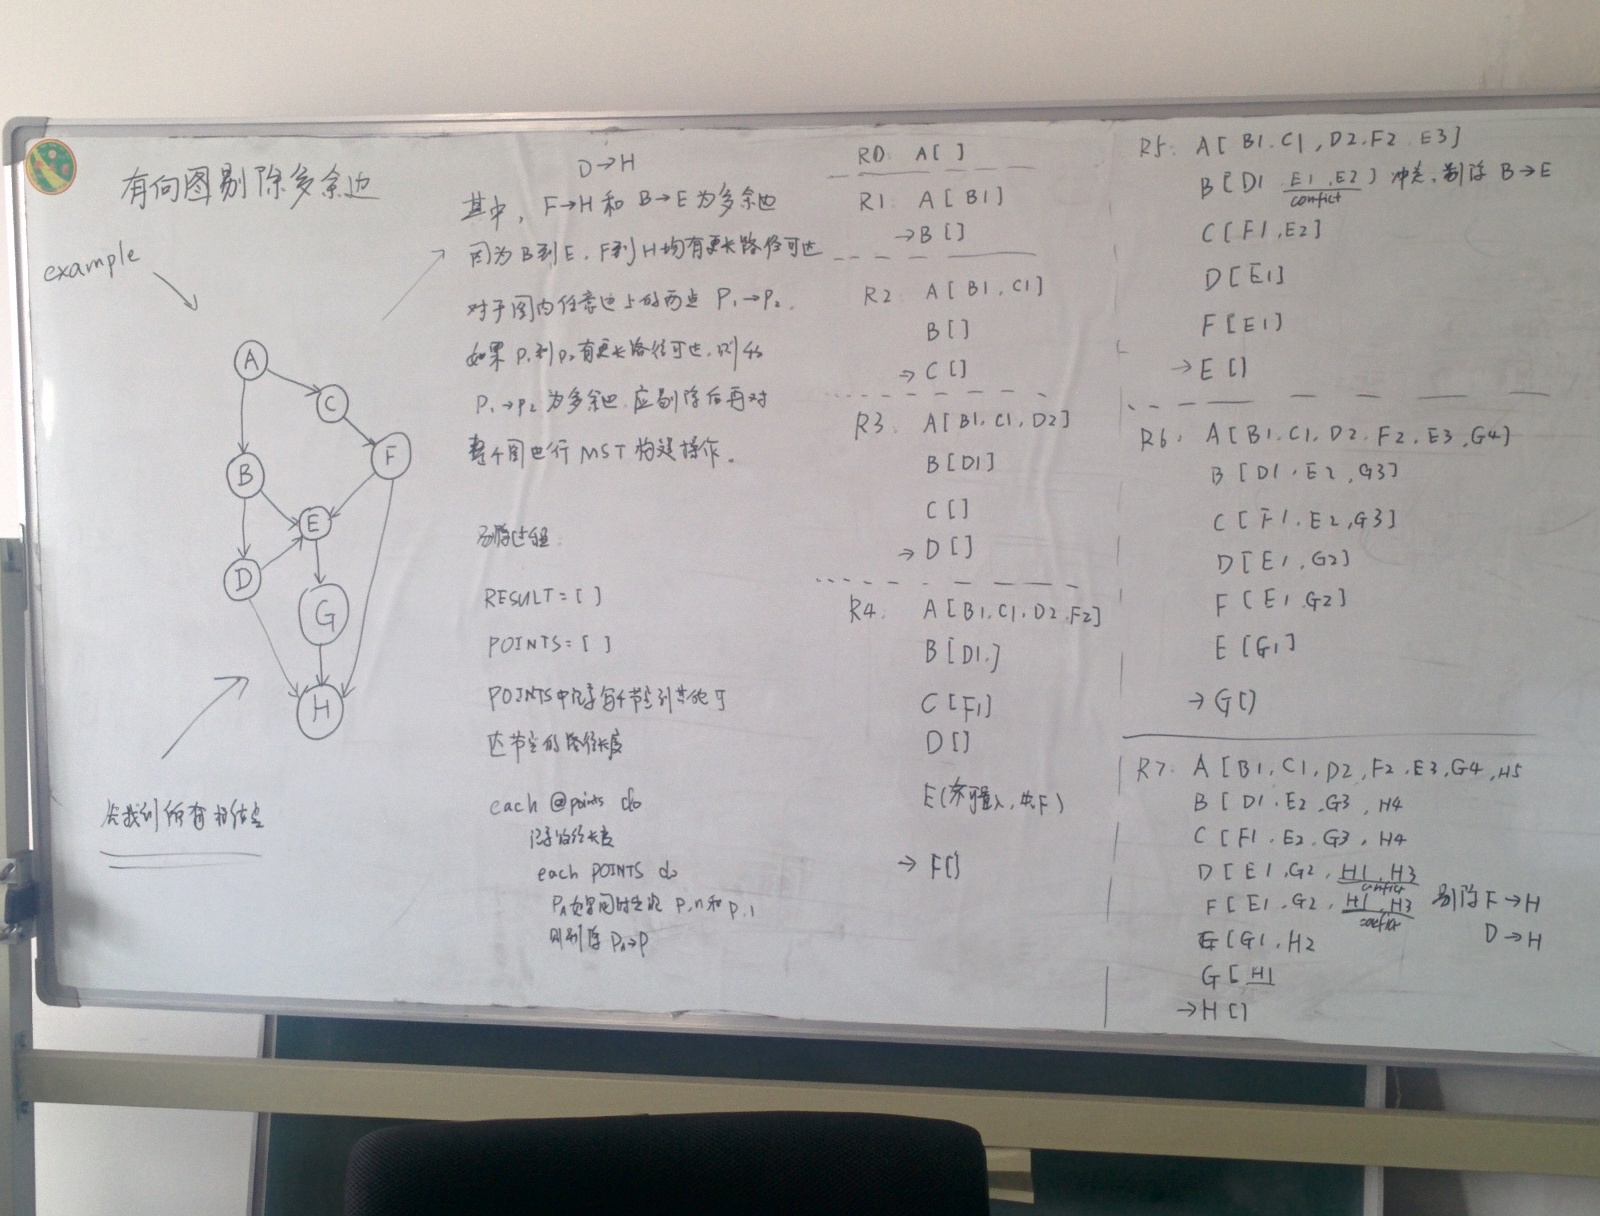 有向图剔除多余边
example
A
C
B
F
E
D
G
H
D→H
其中, F→H 和 B→E 为多余边
因为 B到E, F到H 均有更长路径可达
对于图内任意边上的两点 P₁→P₂,
如果 P₁到P₂有更长路径可达,则称
P₁→P₂ 为多余边,应剔除后再对
整个图进行 MST 构建操作。
剔除过程:
RESULT = [ ]
POINTS = [ ]
POINTS中记录每个节点到其他可
达节点的路径长度
each @points do
记录路径长度
each POINTS do
Pₙ如果同时出现 P,n 和 P,1
则剔除 Pₙ→P
R0: A[ ]
R1: A[B1]
→B[]
R2: A[B1,C1]
B[]
→C[]
R3: A[B1,C1,D2]
B[D1]
C[]
→D[]
R4: A[B1,C1,D2,F2]
B[D1,]
C[F1]
D[]
E(不可置入,先F)
→F[]
R5: A[B1,C1,D2,F2,E3]
B[D1,E1,E2] 冲突,剔除 B→E
confict
C[F1,E2]
D[E1]
F[E1]
→E[]
R6: A[B1,C1,D2,F2,E3,G4]
B[D1,E2,G3]
C[F1,E2,G3]
D[E1,G2]
F[E1,G2]
E[G1]
→G[]
R7: A[B1,C1,D2,F2,E3,G4,H5
B[D1,E2,G3,H4
C[F1,E2,G3,H4
D[E1,G2,H1,H3
confict
F[E1,G2,H1,H3 剔除 F→H
confict
D→H
E[G1,H2
G[H1
→H[]